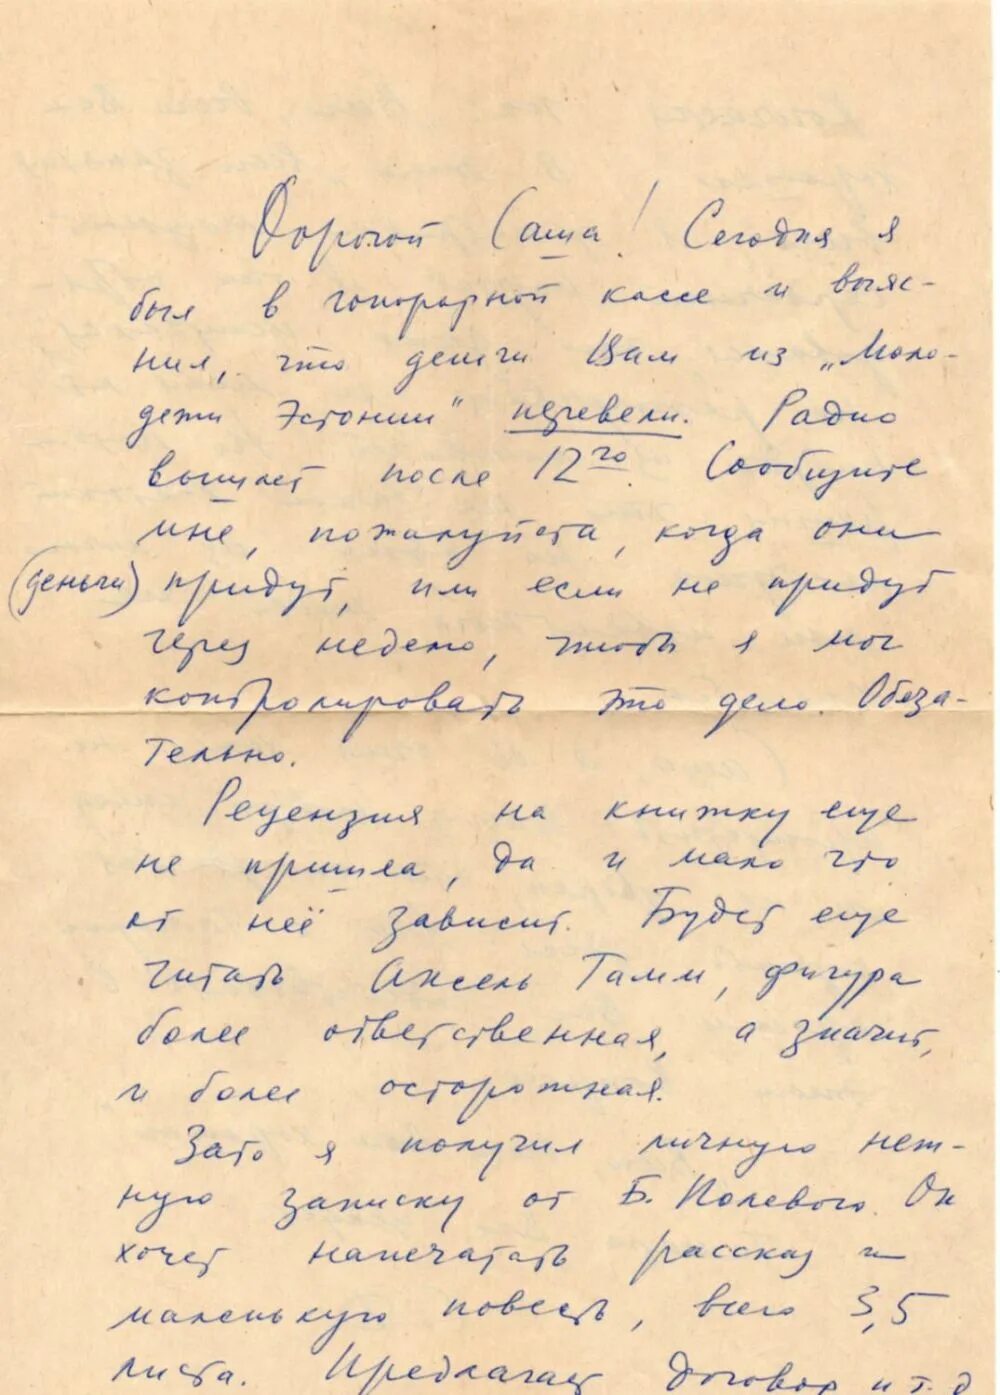 Дорогой Саша! Сегодня я
был в гонорарной кассе и выяс-
нил, что деньги Вам из „Моло-
дежи Эстонии" перевели. Радио
вышлет после 12го. Сообщите
мне, пожалуйста, когда они
(деньги) придут, или если не придут
через неделю, чтобы я мог
контролировать это дело. Обяза-
тельно.
Рецензия на книжку еще
не пришла, да и мало что
от неё зависит. Будет еще
читать Аксель Тамм, фигура
более ответственная, а значит,
и более осторожная.
Зато я получил личную неж-
ную записку от Б. Полевого. Он
хочет напечатать рассказ и
маленькую повесть, всего 3,5
листа. Предлагает договор и т.д